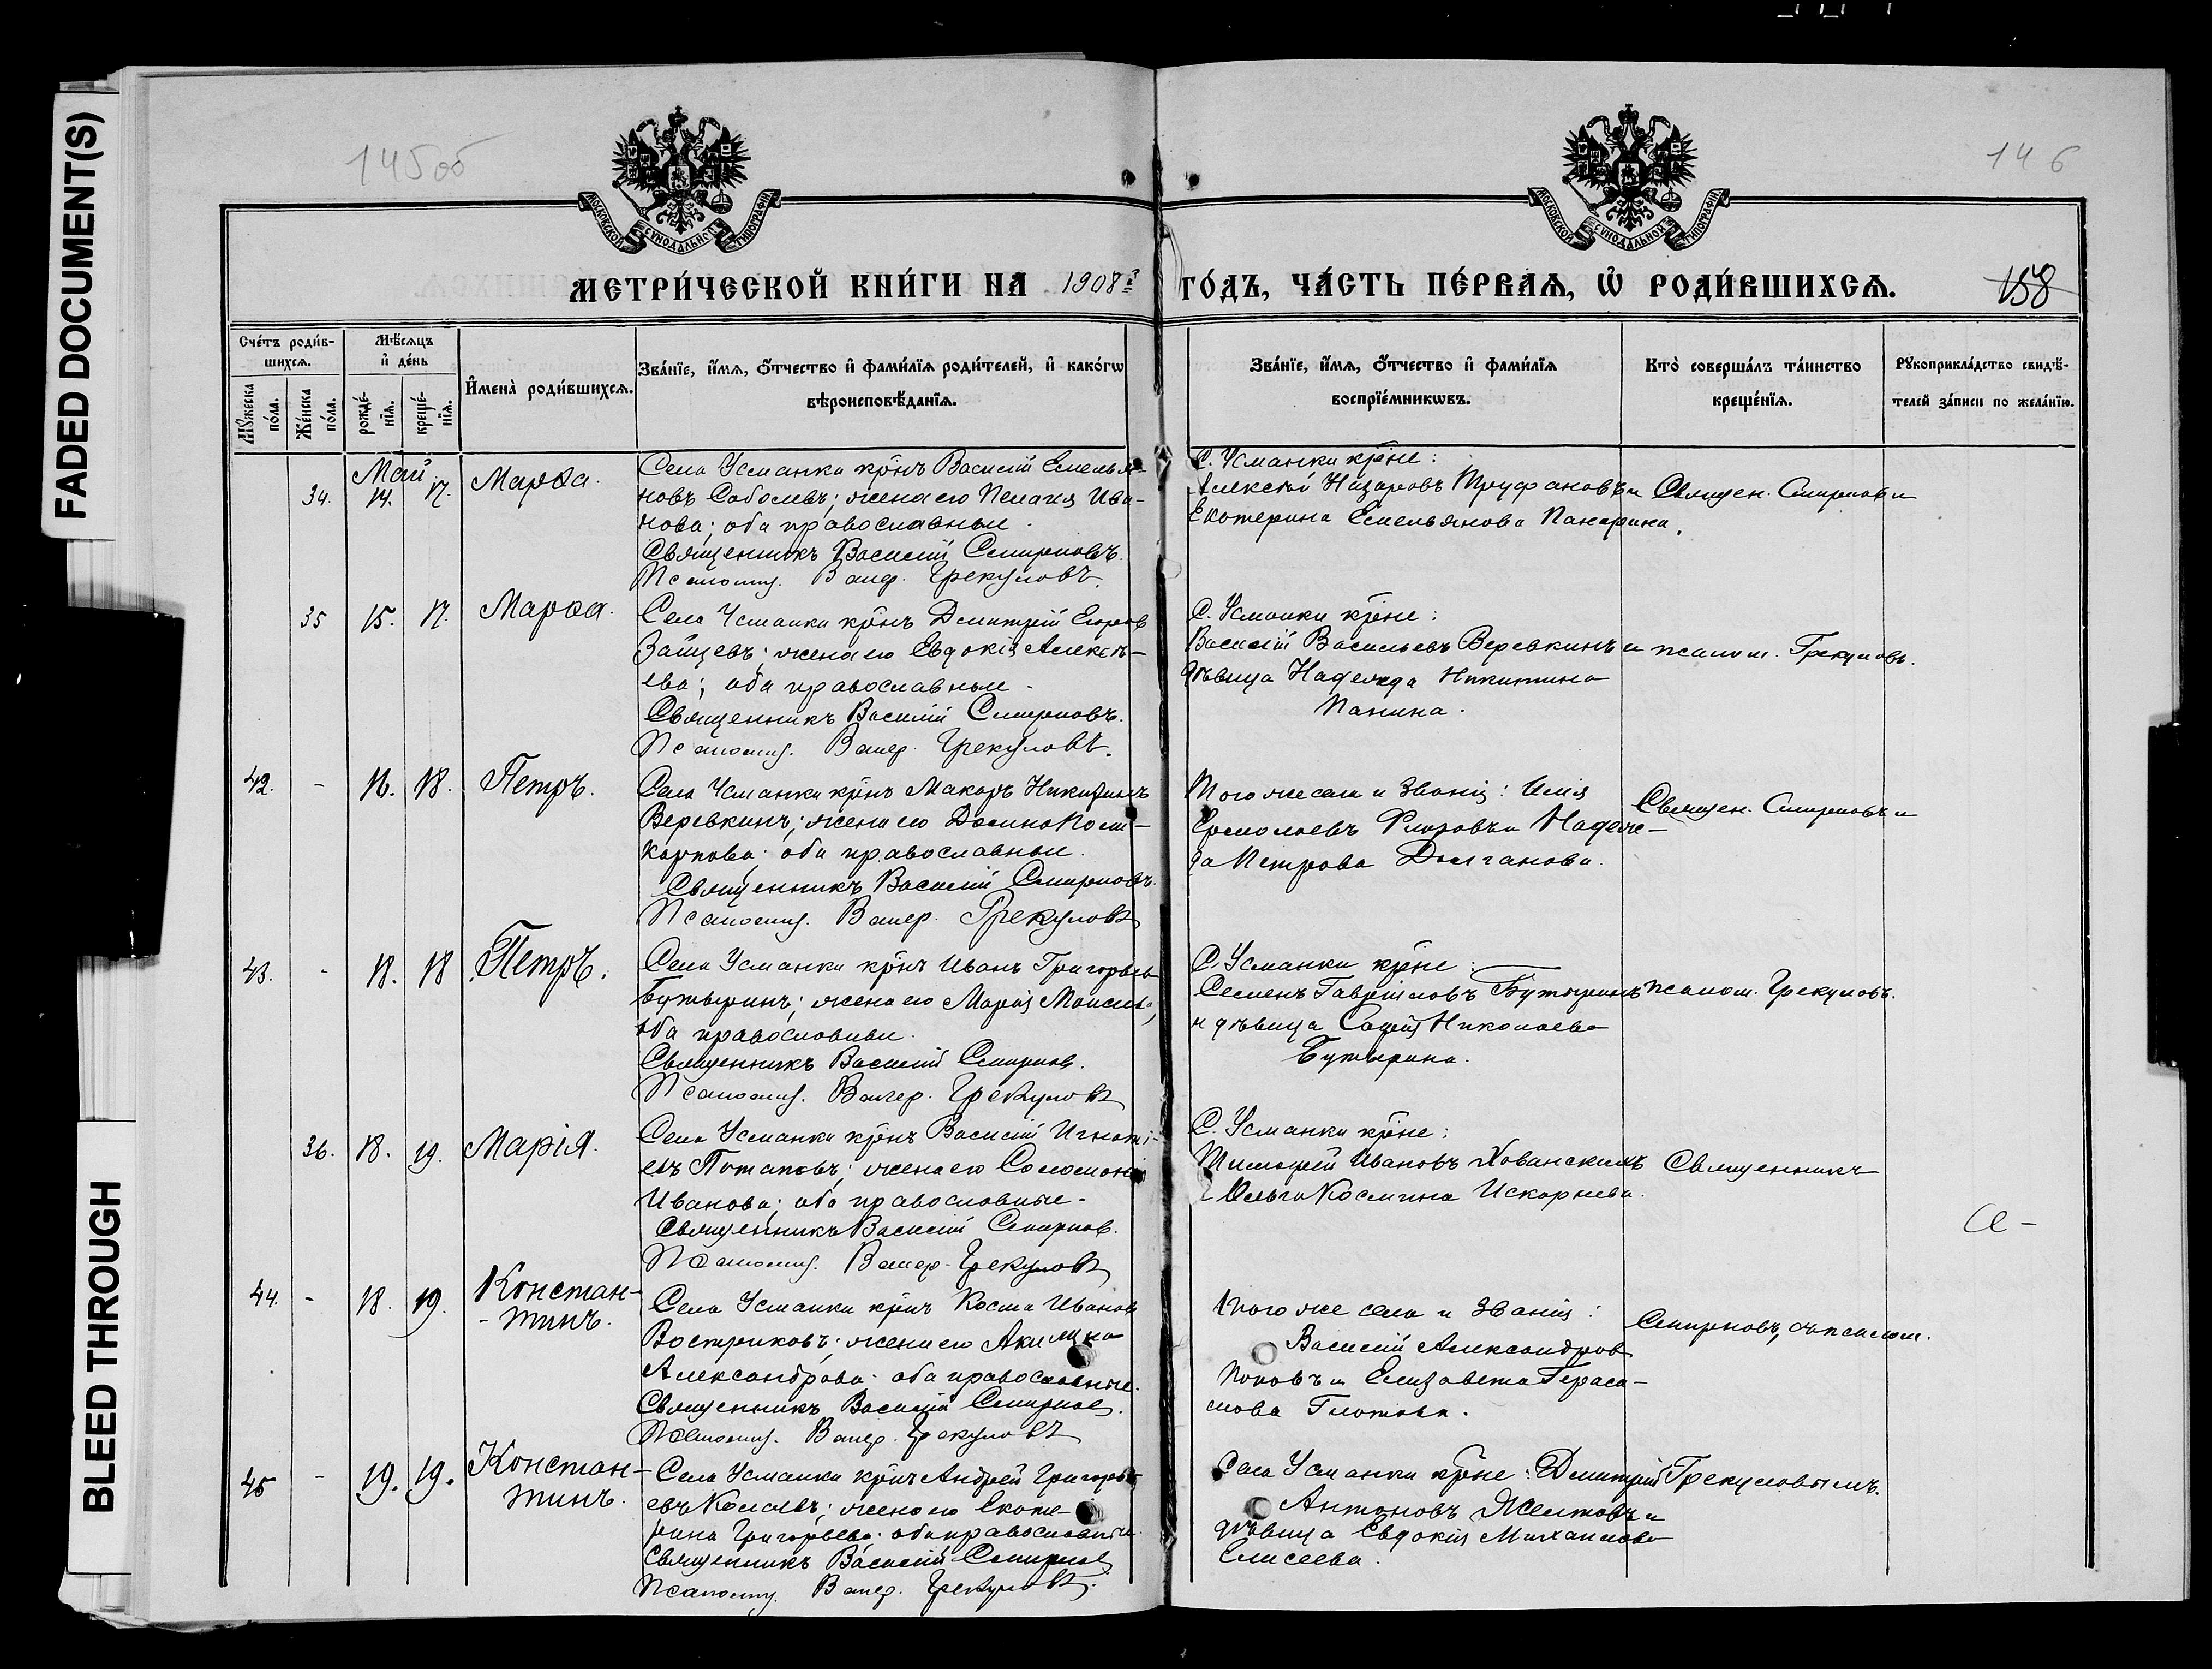 FADED DOCUMENT(S)
BLEED THROUGH
145об
146
МОСКОВСКОЙ СѴНОДАЛЬНОЙ ТИПОГРАФІИ
МОСКОВСКОЙ СѴНОДАЛЬНОЙ ТИПОГРАФІИ
МЕТРИ́ЧЕСКОЙ КНИ́ГИ НА 1908й ГО́ДЪ, ЧА́СТЬ ПЕ́РВАѦ, Ѽ РОДИ́ВШИХСѦ.
158
Сче́тъ роди́в-
шихсѧ.
Мꙋжеска по́ла.
Же́нска по́ла.
Мѣ́сѧцъ
и҆ де́нь
рожде́-
нїѧ.
креще́-
нїѧ.
И҆мена̀ роди́вшихсѧ.
Зва́нїе, и҆́мѧ, ѻ҆́тчество и҆ фами́лїѧ роди́телей, и҆ како́гѡ
вѣроисповѣ́данїѧ.
Зва́нїе, и҆́мѧ, ѻ҆́тчество и҆ фами́лїѧ
воспрїе́мникѡвъ.
Кто̀ соверша́лъ та́инство
креще́нїѧ.
Рꙋкоприкла́дство свидѣ́-
телей за́писи по жела́нїю.
Май
34. 14. 17. Марѳа.
Села Усманки крⷭ҇нъ Василій Емелья-
новъ Соболевъ; жена его Пелагія Ива-
нова; оба православные.
Священникъ Василій Смирновъ.
Псаломщ. Валер. Грекуловъ.
С. Усманки крⷭ҇не:
Алексѣй Назаровъ Труфановъ и
Екатерина Емельянова Панарина.
Священ. Смирновъ и
35 15. 17. Марѳа.
Села Усманки крⷭ҇нъ Димитрій Егоров
Зайцевъ; жена его Евдокія Алексѣ-
ева; оба православные.
Священникъ Василій Смирновъ.
Псаломщ. Валер. Грекуловъ.
С. Усманки крⷭ҇не:
Василій Васильевъ Веревкинъ и
дѣвица Надежда Никитина
Панина.
псалом. Грекуловъ.
42. - 16. 18. Петръ.
Села Усманки крⷭ҇нъ Макаръ Никитинъ
Веревкинъ; жена его Домна Поли-
карпова; оба православные.
Священникъ Василій Смирновъ.
Псаломщ. Валер. Грекуловъ
Того же села и званія: Илія
Ермолаевъ Фроловъ и Надеж-
да Петрова Долганова.
Священ. Смирновъ и
43. - 18. 18 Петръ.
Села Усманки крⷭ҇нъ Иванъ Григорьев
Бутыринъ; жена его Марія Моисеева,
оба православные.
Священникъ Василій Смирнов.
Псаломщ. Валер. Грекуловъ
С. Усманки крⷭ҇не:
Семенъ Гавріиловъ Бутыринъ
и дѣвица Софія Николаева
Бутырина.
псалом. Грекуловъ.
36. 18. 19. Марія.
Села Усманки крⷭ҇нъ Василій Игнаті-
евъ Потаповъ; жена его Соломонія
Иванова; оба православные.
Священникъ Василій Смирнов.
Псаломщ. Валер. Грекуловъ
С. Усманки крⷭ҇не:
Тимофей Ивановъ Хованскихъ
Ольга Космина Искорнева.
Священникъ
44. - 18. 19. Констан-
- тинъ.
Села Усманки крⷭ҇нъ Косма Иванов
Востриковъ; жена его Акилина
Александрова; оба православные.
Священникъ Василій Смирнов.
Псаломщ. Валер. Грекуловъ
Того же села и званія:
Василій Александров
Поповъ и Елизавета Гераси-
мова Глотова.
Смирновъ, съ псалом.
45 - 19. 19. Констан-
тинъ.
Села Усманки крⷭ҇нъ Андрей Григорьев
жена его Екате-
рина Григорьева; оба православные.
Священникъ Василій Смирнов
Псаломщ. Валер. Грекуловъ.
Села Усманки крⷭ҇не: Димитрій
Антоновъ Желтовъ и
дѣвица Евдокія Михаилова
Елисеева.
Грекуловымъ.